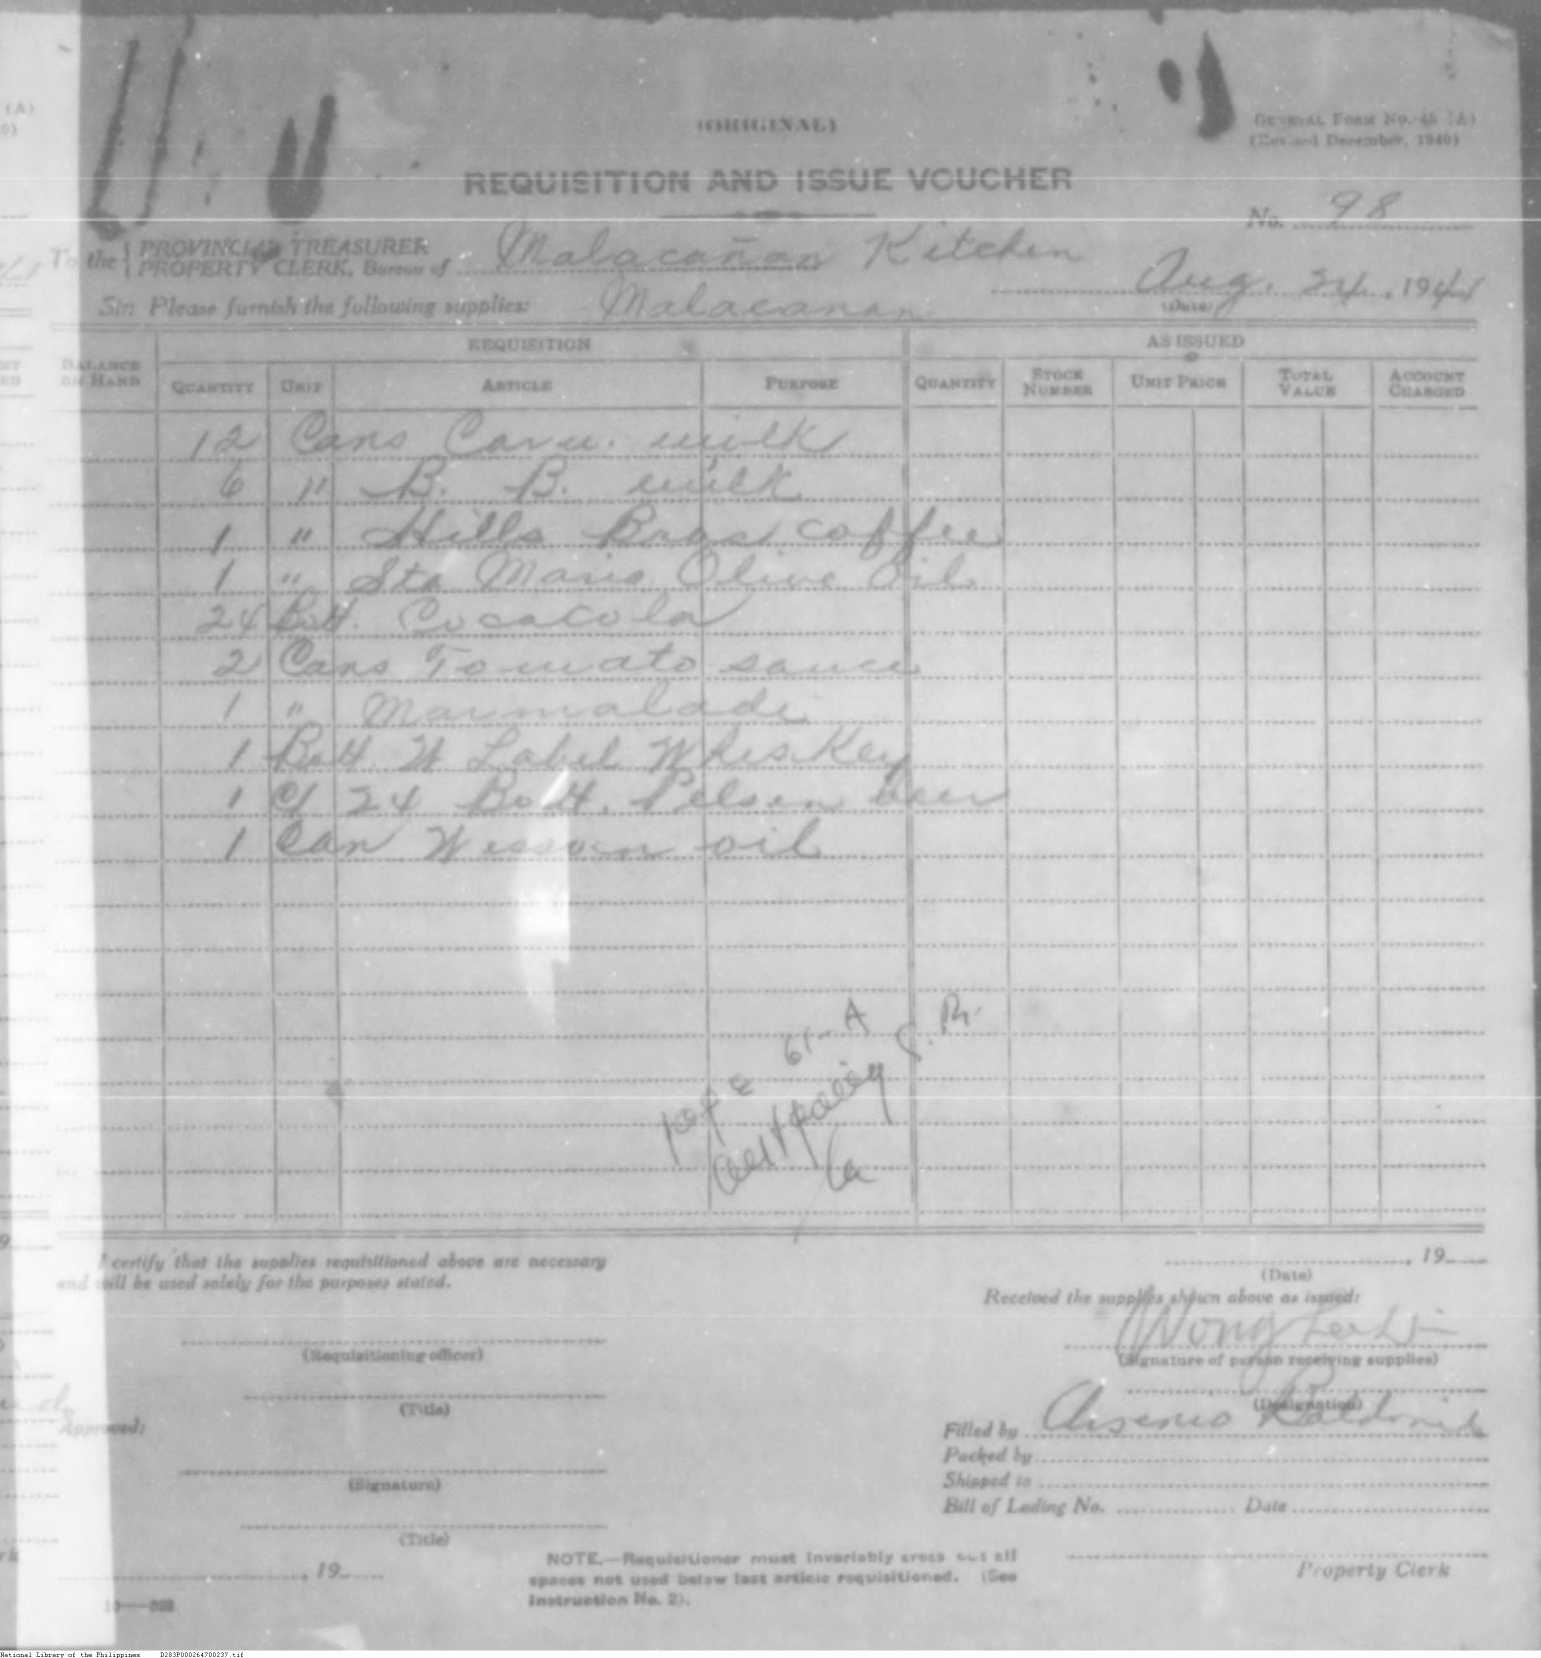 (ORIGINAL)
GENERAL FORM No. 45 (A)
(Revised December, 1940)
REQUISITION AND ISSUE VOUCHER
No. 98
To the { PROVINCIAL TREASURER
PROPERTY CLERK, Bureau of Malacañan Kitchen
Aug. 24, 1941
(Date)
Sir: Please furnish the following supplies: Malacanan
REQUISITION AS ISSUED
BALANCE ON HAND QUANTITY UNIT ARTICLE PURPOSE QUANTITY STOCK NUMBER UNIT PRICE TOTAL VALUE ACCOUNT CHARGED
12 Cans Carn. milk
6 " B. B. milk
1 " Hills Bros coffee
1 " Sta Maria Olive Oil
24 Bott. Cocacola
2 Cans Tomato sauce
1 " Marmalade
1 Bott. W Label Whiskey
1 c/ 24 Bott. Pilsen beer
1 Can Wesson oil
61-A
I certify that the supplies requisitioned above are necessary
and will be used solely for the purposes stated.
(Requisitioning officer)
(Title)
Approved:
(Signature)
(Title)
, 19
, 19
(Date)
Received the supplies shown above as issued:
Wong
(Signature of person receiving supplies)
(Designation)
Filled by Arsenio
Packed by
Shipped to
Bill of Lading No. Date
Property Clerk
NOTE.—Requisitioner must invariably cross out all
spaces not used below last article requisitioned. (See
Instruction No. 2).
National Library of the Philippines D283P000264700237.tif